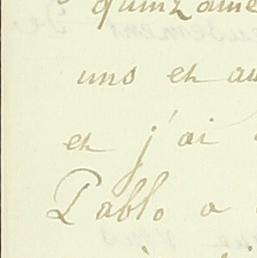 quinzaine
uns et au
et j'ai
Pablo a